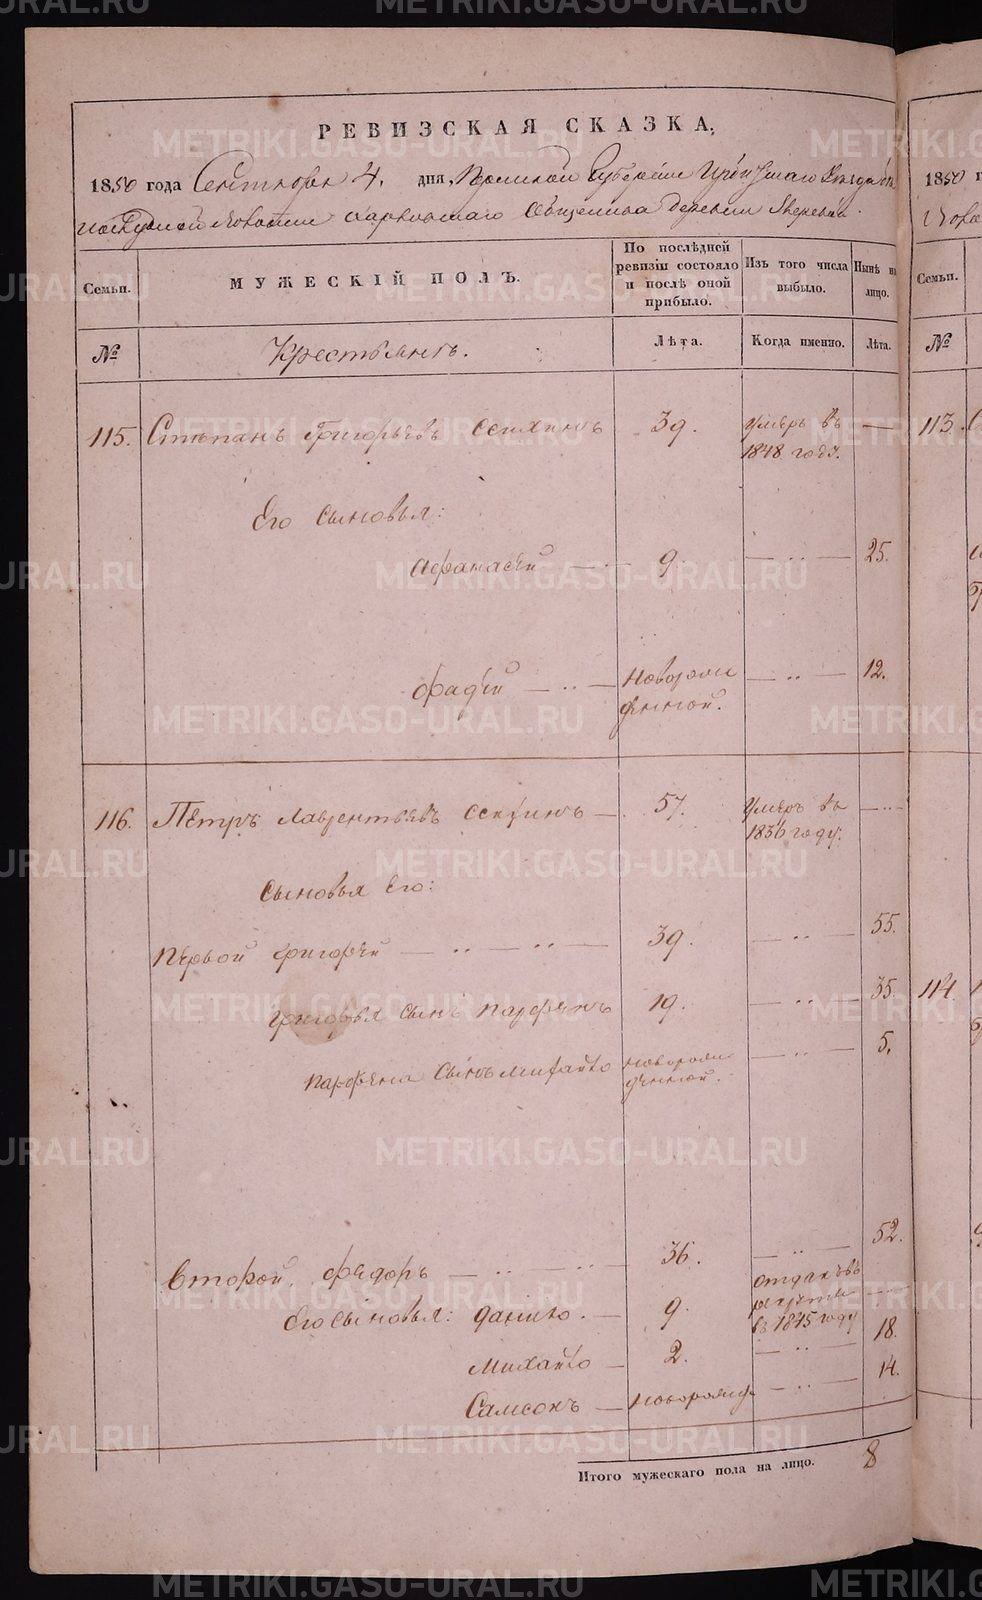 РЕВИЗСКАЯ СКАЗКА,
1850 года Сентября 4. дня, Пермской Губернiи Ирбитскаго
волости сельскаго общества деревни
Семьи.
МУЖЕСКIЙ ПОЛЪ.
По послѣдней ревизiи состояло и послѣ оной прибыло.
Изъ того числа выбыло.
Нынѣ на лицо.
№
Крестьянъ.
Лѣта.
Когда именно.
Лѣта.
115. Степанъ Григорьевъ 39. умеръ въ 1848 году. —
Его сыновья:
Афанасей — 9. — " — 25.
Фадей — " — новорожденной. — " — 12.
116. Петръ Лаврентьевъ — 57. умеръ въ 1836 году. — " —
сыновья Его:
Первой Григорей — " — " — 39. — " — 55.
Григорья сынъ Парфенъ 19. — " — 35.
Парфена сынъ Михайло новорожденной. — " — 5.
Второй. Федоръ — " — " — 36. — " — 52.
Его сыновья: Данило. — 9. отданъ въ рекруты въ 1845 году — " —
Михайло — 2. — " — 18.
Самсонъ — новорожд. — " — 14.
Итого мужескаго пола на лицо. 8
113.
114.
1850
Семьи.
№
METRIKI.GASO-URAL.RU